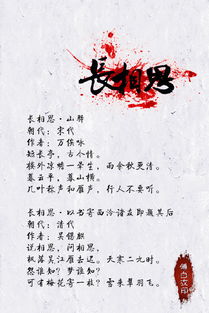 長相思
长相思·山驿
朝代：宋代
作者：万俟咏
短长亭，古今情。
楼外凉蟾一晕生，雨余秋更清。
暮云平，暮山横。
几叶秋声和雁声，行人不要听。
长相思·以书寄西泠诸友即题其后
朝代：清代
作者：吴锡麒
说相思，问相思，
枫落吴江雁去迟。天寒二九时。
怨谁知？梦谁知？
可有梅花寄一枝？雪来翠羽飞。